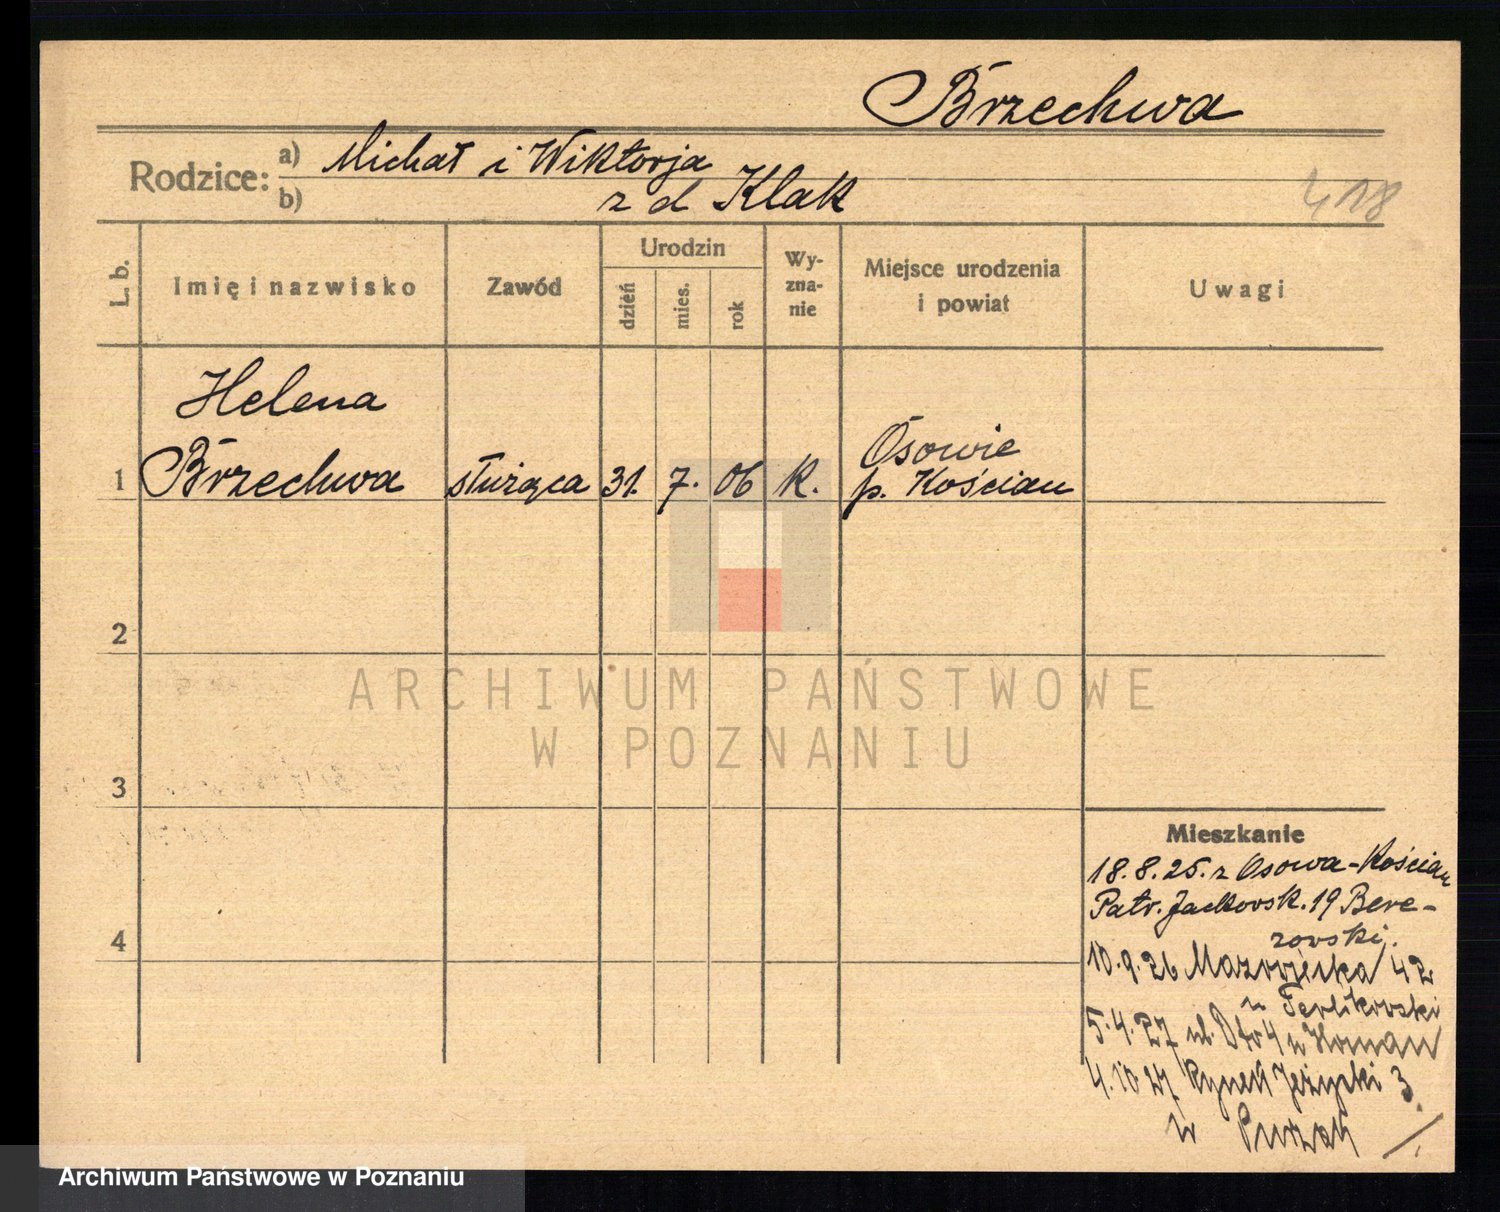 Brzechwa
Rodzice: a) Michał i Wiktorja
b) z d Klak
418
L. b.
Imię i nazwisko
Zawód
Urodzin
dzień
mies.
rok
Wy-
zna-
nie
Miejsce urodzenia
i powiat
Uwagi
Helena
1 Brzechwa służąca 31. 7. 06 K. Osowie
p. Kościan
2
ARCHIWUM PAŃSTWOWE
W POZNANIU
3
Mieszkanie
18.8.25. z Osowa-Kościan
Patr. Jackowsk. 19 Bere-
4
zowski.
10.9.26 Mazowiecka 42
u Ferlikowski
5.4.27 ul. 4 u
4.10 27 Rynek Jeżycki 3
u
Archiwum Państwowe w Poznaniu